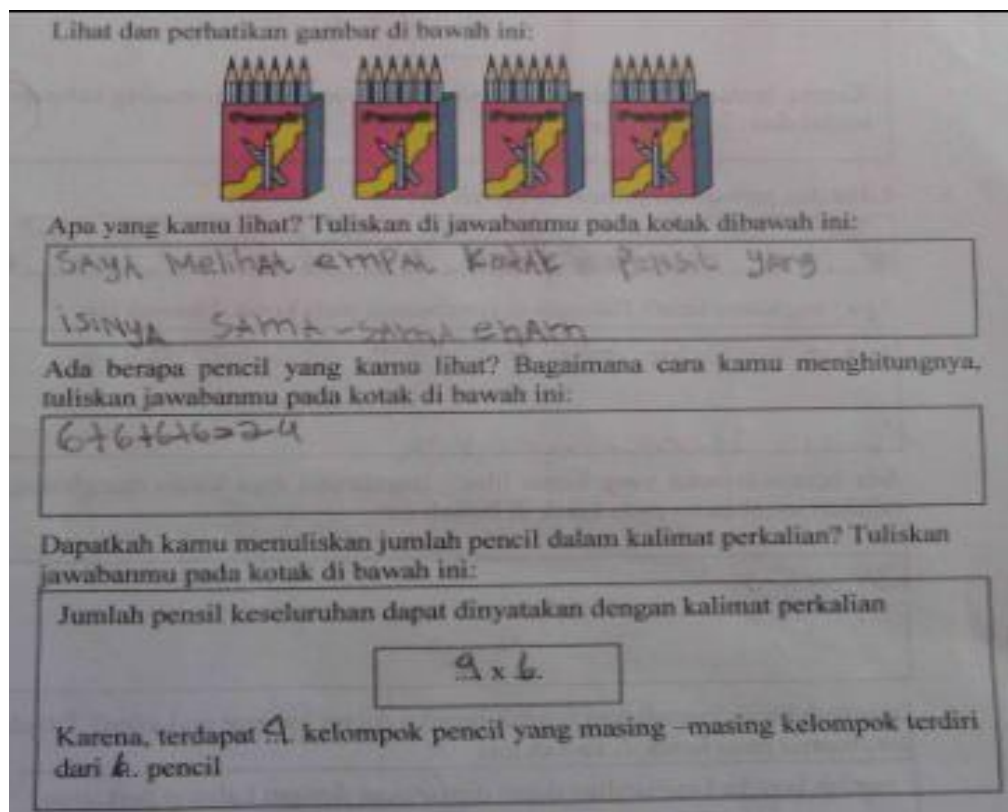 Lihat dan perhatikan gambar di bawah ini:
Apa yang kamu lihat? Tuliskan di jawabanmu pada kotak dibawah ini:
SAYA Melihat empat kotak pensil yang
isinya SAMA-SAMA enAm
Ada berapa pencil yang kamu lihat? Bagaimana cara kamu menghitungnya,
tuliskan jawabanmu pada kotak di bawah ini:
6+6+6+6=24
Dapatkah kamu menuliskan jumlah pencil dalam kalimat perkalian? Tuliskan
jawabanmu pada kotak di bawah ini:
Jumlah pensil keseluruhan dapat dinyatakan dengan kalimat perkalian
4 x 6.
Karena, terdapat 4. kelompok pencil yang masing –masing kelompok terdiri
dari 6. pencil